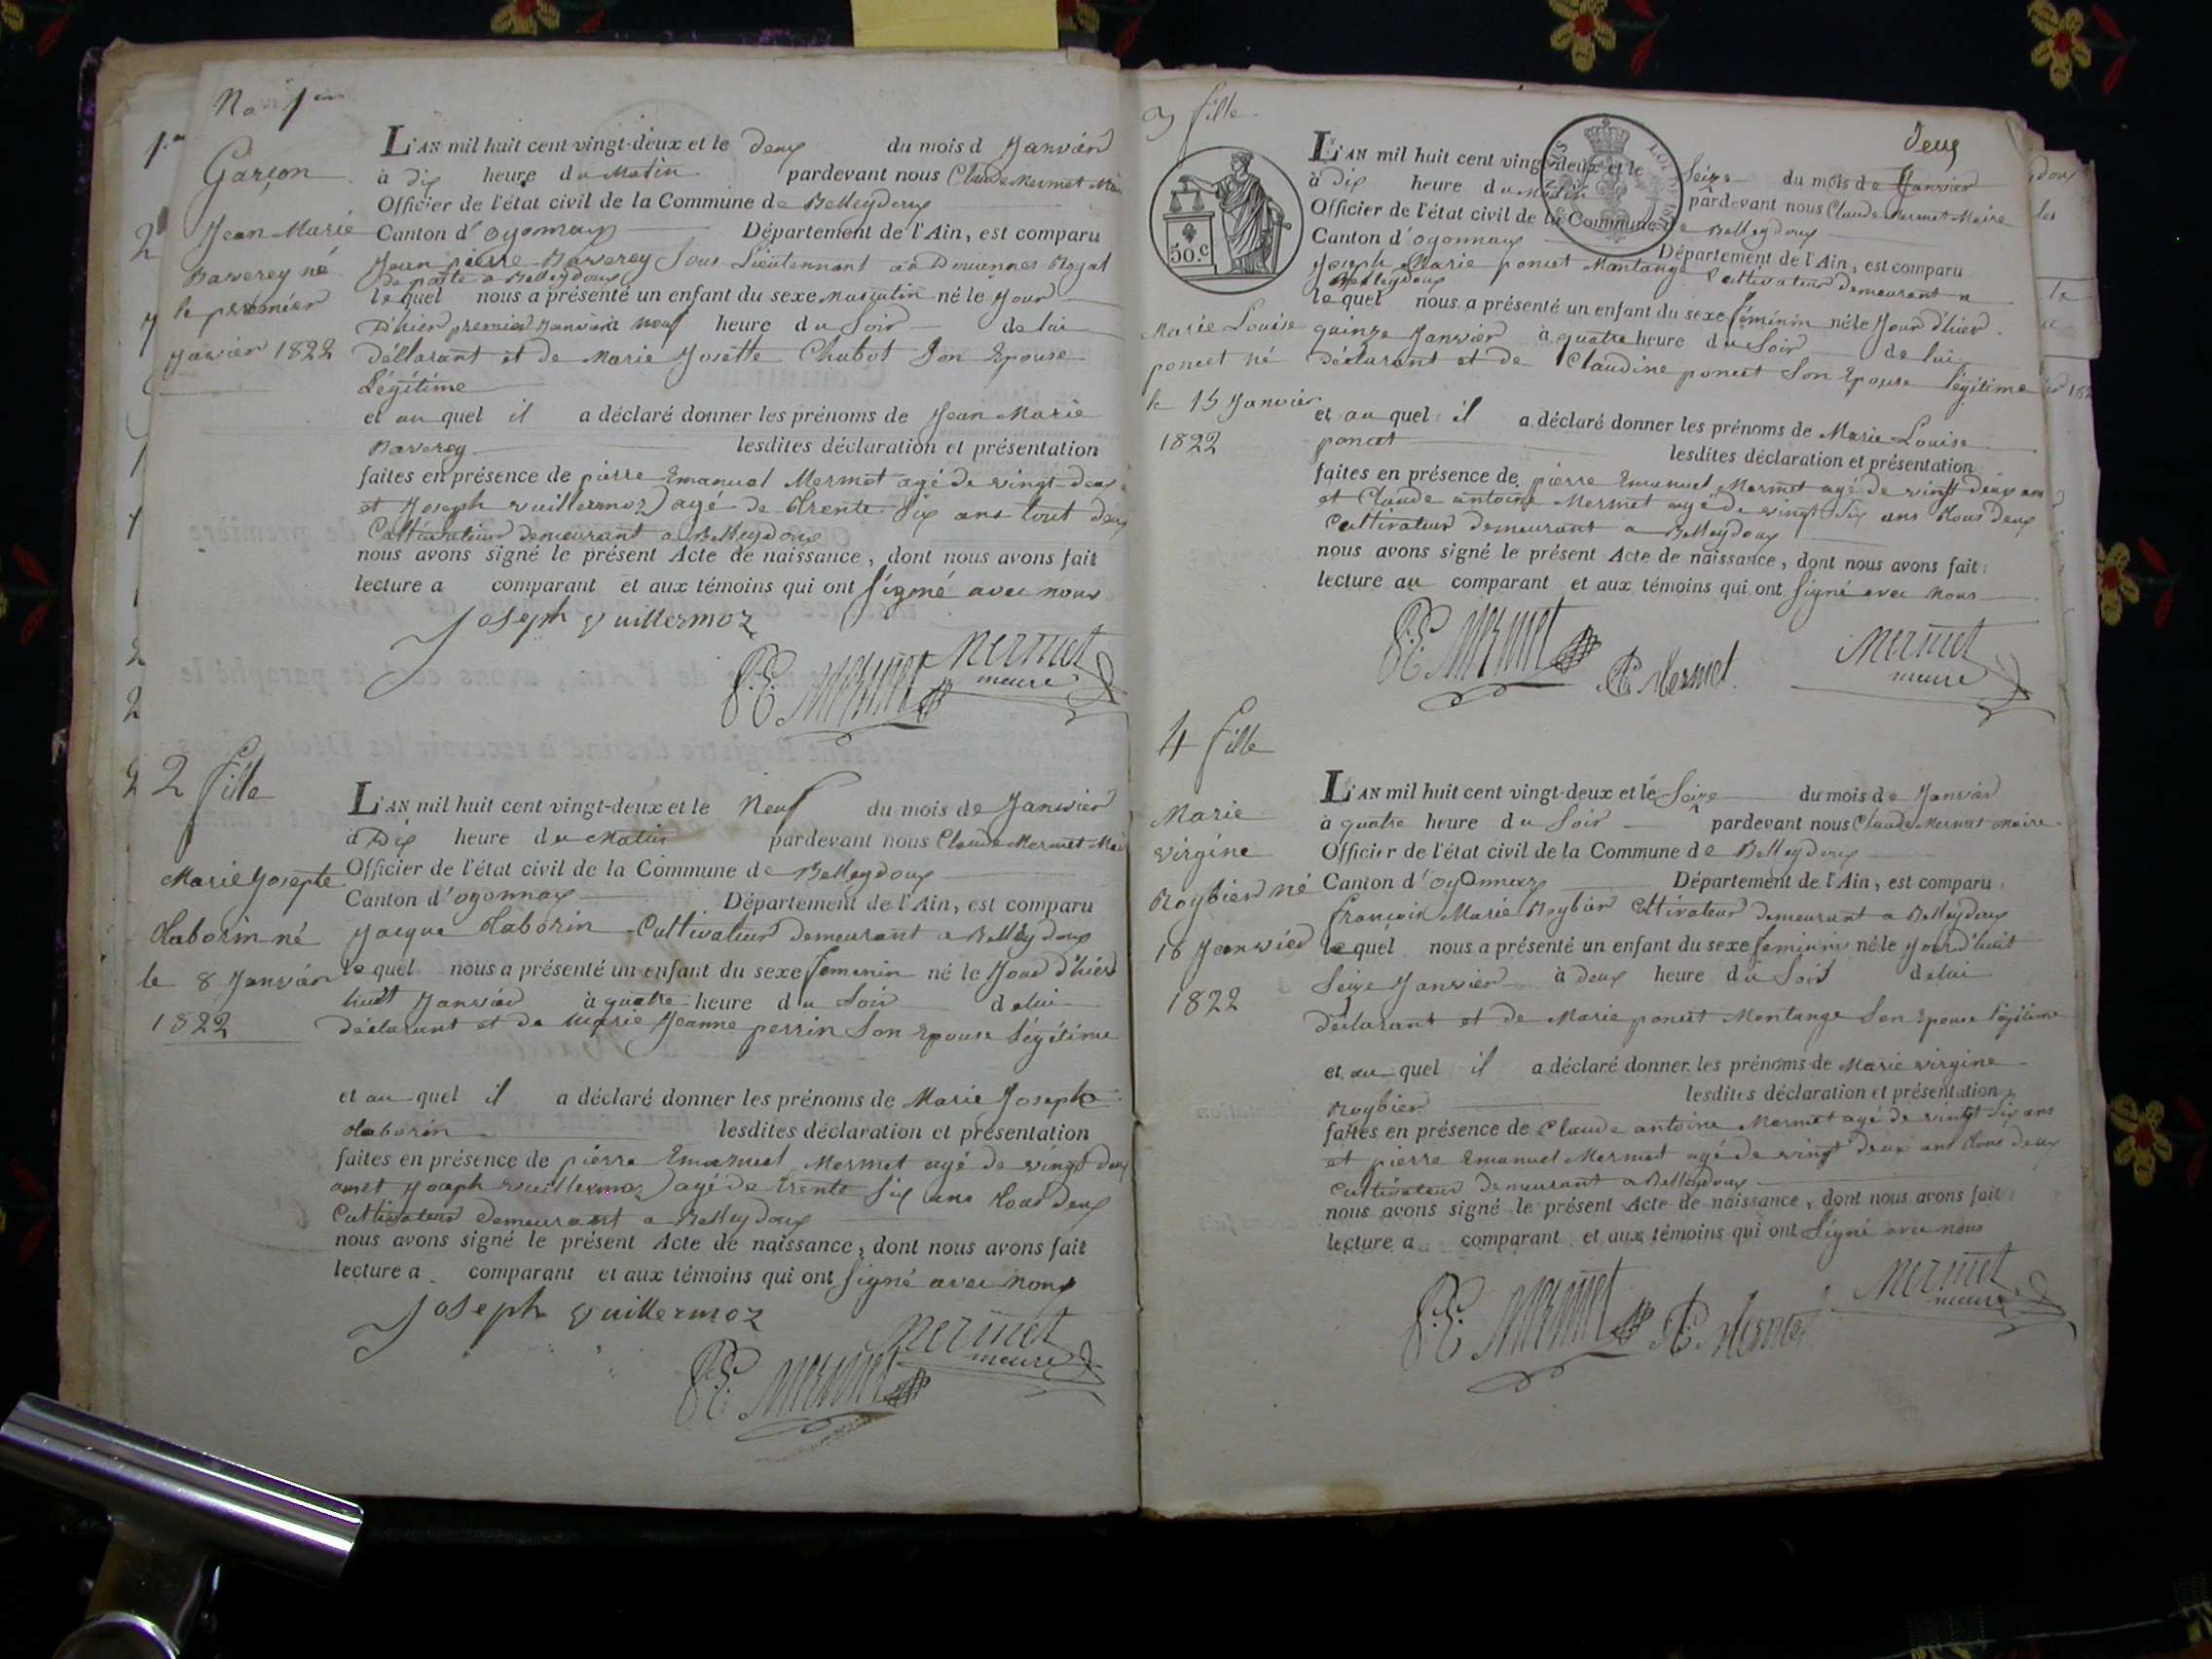 No 1er
Garçon
Jean Marie
Baverey né
le premier
Janvier 1822
L'AN mil huit cent vingt-deux et le deux du mois d Janvier
à dix heure du Matin pardevant nous Claude Mermet
Officier de l'état civil de la Commune de Belleydoux
Canton d'oyonnax Département de l'Ain, est comparu
Jean pierre Baverey Sous Lieutennant
a Belleydoux
lequel nous a présenté un enfant du sexe Masculin né le Jour
D'hier premier Janvier à neuf heure du Soir de lui
déclarant et de Marie Josette Chabot Son Epouse
Légitime
et au quel il a déclaré donner les prénoms de Jean Marie
Baverey lesdites déclaration et présentation
faites en présence de pierre Emanuel Mermet agé de vingt deux
et Joseph vuillermoz agé de trente Six ans tout deux
Cultivateur demeurant a Belleydoux
nous avons signé le présent Acte de naissance, dont nous avons fait
lecture a comparant et aux témoins qui ont Signé avec nous
Joseph vuillermoz
P.E. Mermet
Mermet
meire
2 fille
Marie Josephe
né
le 8 Janvier
1822
L'AN mil huit cent vingt-deux et le Neuf du mois de Janvier
à Dix heure du Matin pardevant nous Claude Mermet
Officier de l'état civil de la Commune de Belleydoux
Canton d'oyonnax Département de l'Ain, est comparu
Jacque Cultivateur demeurant a Belleydoux
lequel nous a présenté un enfant du sexe feminin né le Jour d'hier
huit Janvier à quatre heure du Soir de lui
déclarant et de Marie Jeanne perrin Son Epouse Légitime
et au quel il a déclaré donner les prénoms de Marie Josephe
lesdites déclaration et présentation
faites en présence de pierre Emanuel Mermet agé de vingt deux
ans et Joseph vuillermoz agé de trente Six ans tous deux
Cultivateur demeurant a Belleydoux
nous avons signé le présent Acte de naissance, dont nous avons fait
lecture a comparant et aux témoins qui ont Signé avec nous
Joseph vuillermoz
P.E. Mermet
Mermet
meire
deux
3 fille
50.c
Marie Louise
poncet né
le 15 Janvier
1822
L'AN mil huit cent vingt-deux et le Seize du mois de Janvier
à Dix heure du Matin pardevant nous Claude Mermet Maire
Officier de l'état civil de la Commune de Belleydoux
Canton d'oyonnax Département de l'Ain, est comparu
Joseph Marie poncet Montange Cultivateur demeurant a
Belleydoux
lequel nous a présenté un enfant du sexe féminin né le Jour d'hier
quinze Janvier à quatre heure du Soir de lui
déclarant et de Claudine poncet Son Epouse légitime
et au quel il a déclaré donner les prénoms de Marie Louise
poncet lesdites déclaration et présentation
faites en présence de pierre Emanuel Mermet agé de vingt deux ans
et Claude antoine Mermet agé de vingt Six ans tous deux
Cultivateur demeurant a Belleydoux
nous avons signé le présent Acte de naissance, dont nous avons fait
lecture au comparant et aux témoins qui ont Signé avec nous
P.E. Mermet
Mermet
Mermet
meire
4 fille
Marie
virgine
Roybier né
16 Janvier
1822
L'AN mil huit cent vingt-deux et le Seize du mois de Janvier
à quatre heure du Soir pardevant nous Claude Mermet Maire
Officier de l'état civil de la Commune de Belleydoux
Canton d'oyonnax Département de l'Ain, est comparu
françois Marie Roybier Cultivateur demeurant a Belleydoux
lequel nous a présenté un enfant du sexe feminin né le
Seize Janvier à deux heure du Soir de lui
déclarant et de Marie poncet Montange Son Epouse légitime
et au quel il a déclaré donner les prénoms de Marie virgine
Roybier lesdites déclaration et présentation
faites en présence de Claude antoine Mermet agé de vingt Six ans
et pierre Emanuel Mermet agé de vingt deux ans tous deux
Cultivateur demeurant a Belleydoux
nous avons signé le présent Acte de naissance, dont nous avons fait
lecture a comparant et aux témoins qui ont Signé avec nous
P.E. Mermet
Mermet
Mermet
meire